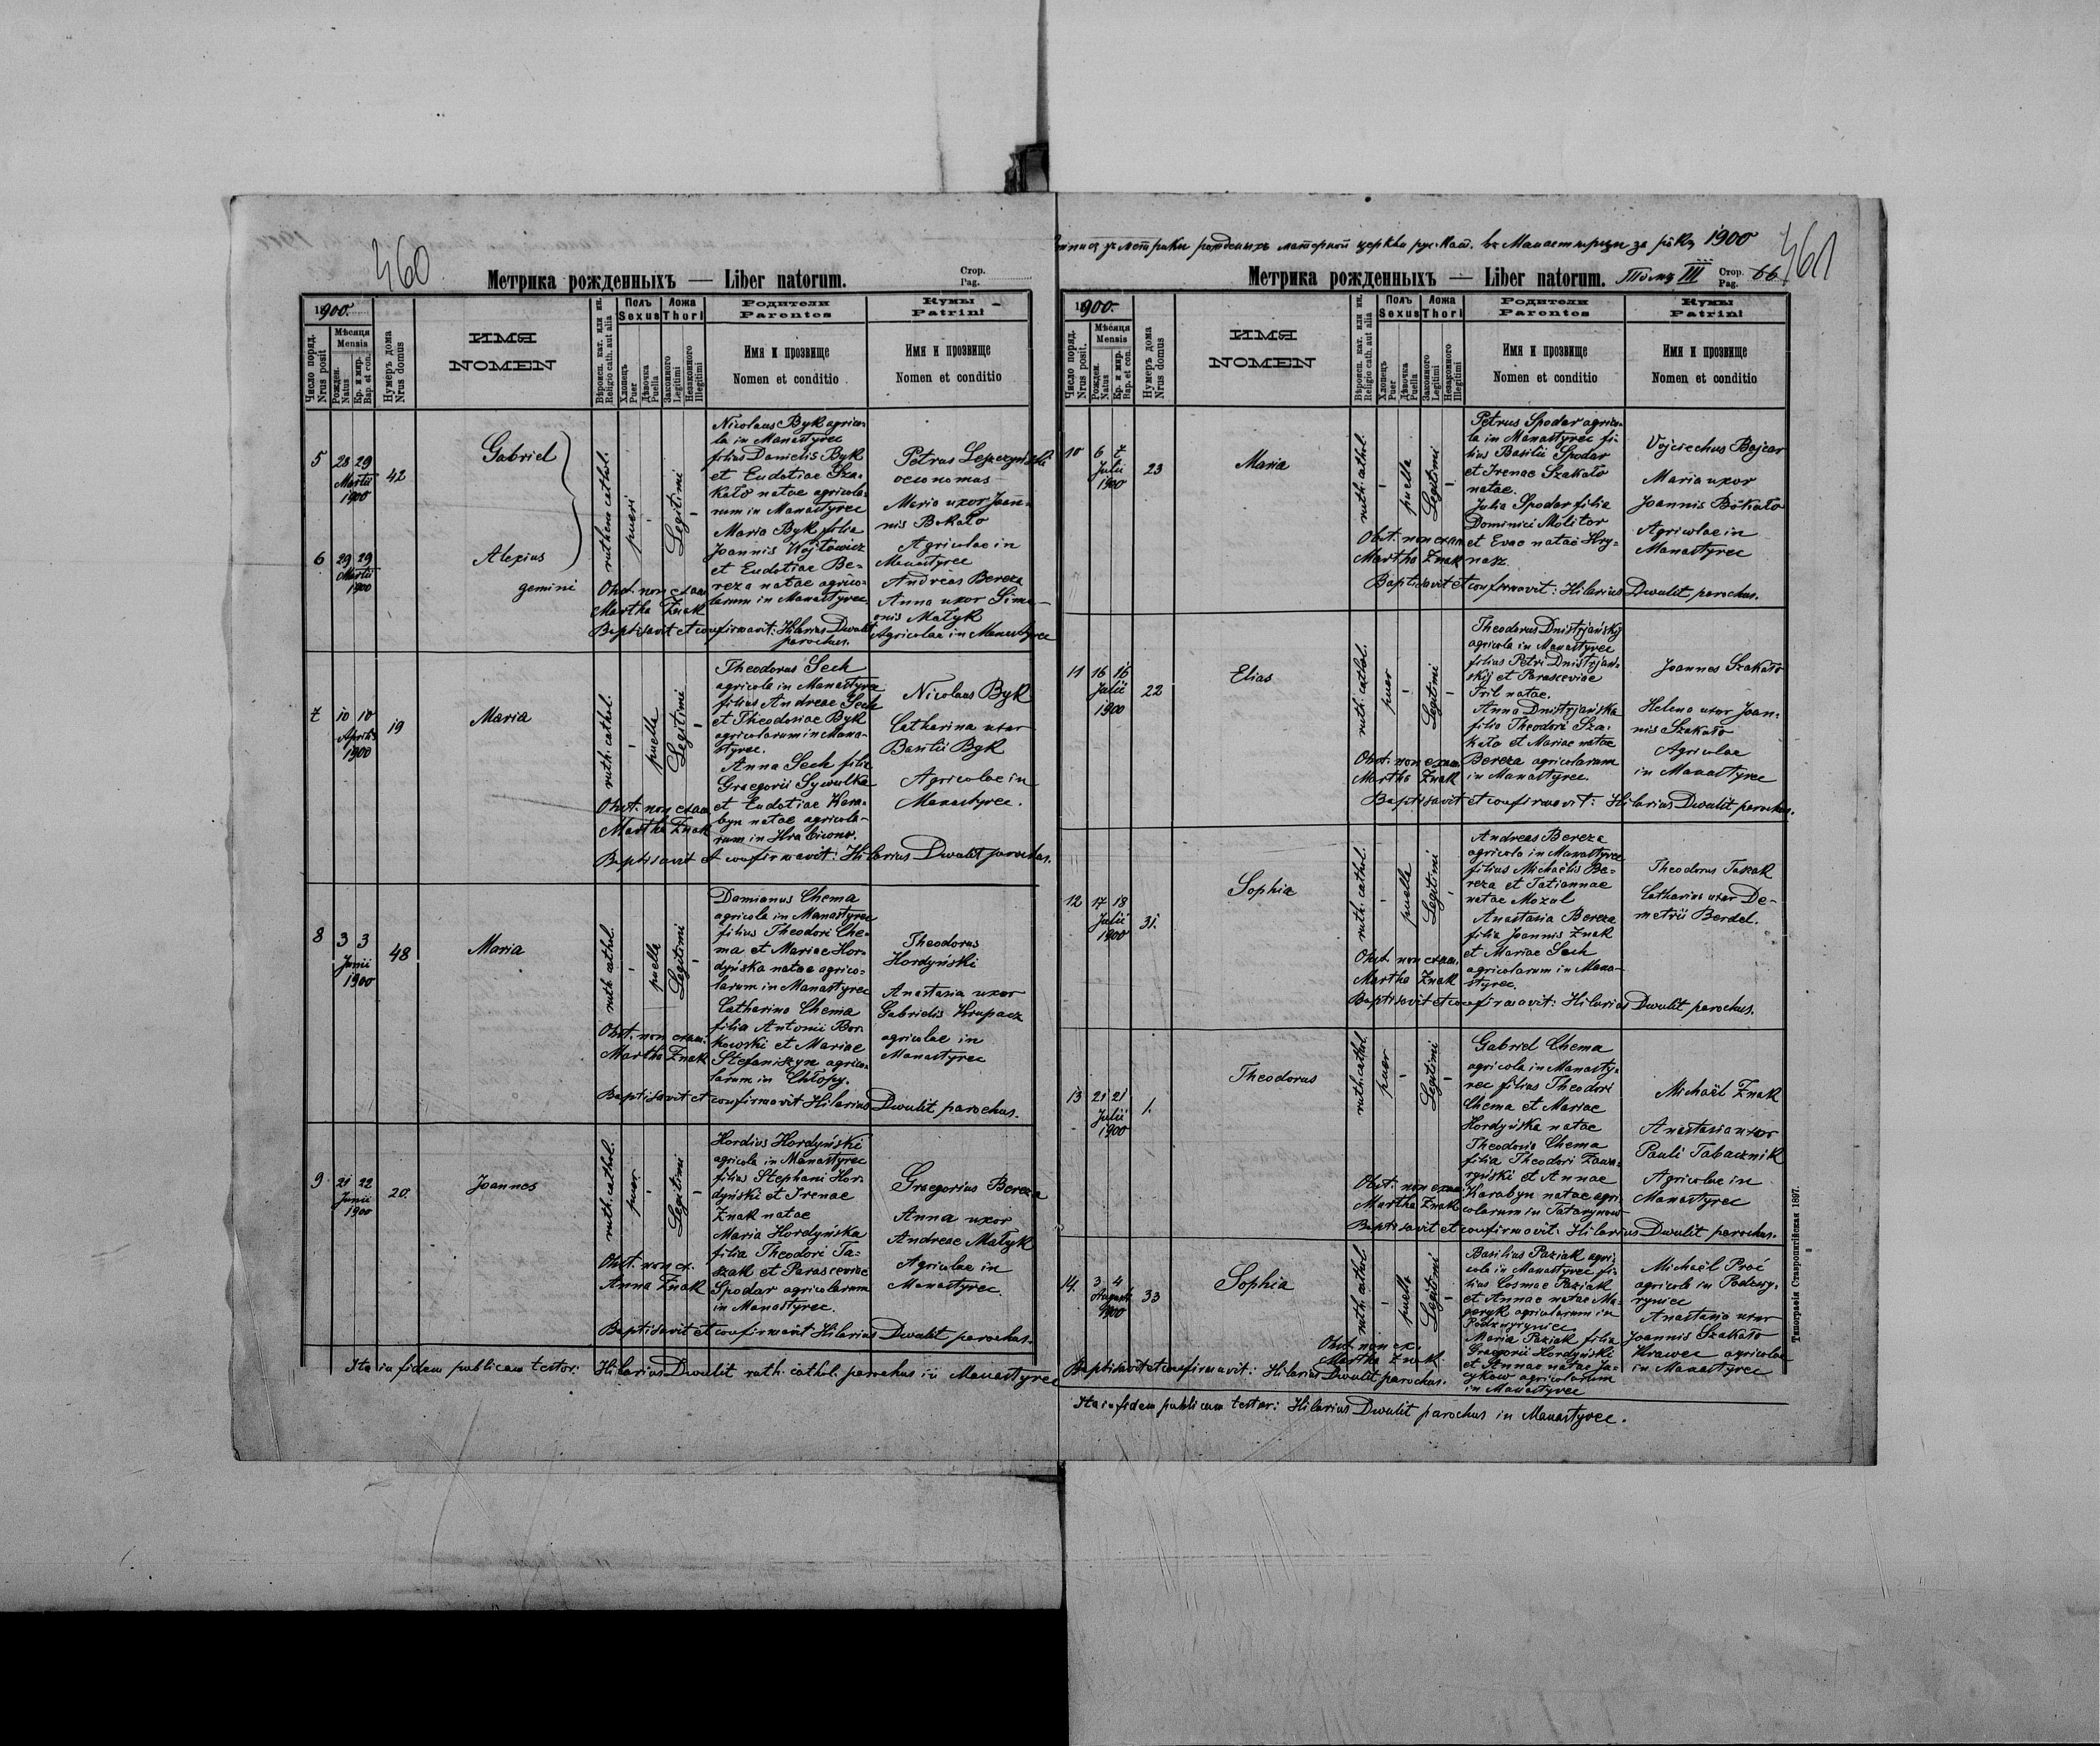 460
Метрика рожденныхъ — Liber natorum.
Стор.
Pag.
1900.
Число поряд.
Nrus posit
Мѣсяця
Mensis
Рожден.
Natus
Кр. и мир.
Bap. et con.
Нумеръ дома
Nrus domus
ИМЯ
NOMEN
Вѣроисп. кат. или ин.
Religio cath. aut alia
Полъ
Sexus
Хлопець
Puer
Дѣвочка
Puella
Ложа
Thori
Законного
Legitimi
Незаконного
Illegitimi
Родители
Parentes
Имя и прозвище
Nomen et conditio
Кумы
Patrini
Имя и прозвище
Nomen et conditio
5
28 29
Martii
1900
42
Gabriel
6
29 29
Martii
1900
Alexius
gemini
ruthen cathol.
pueri
Legitimi
Obst. non exam
Martha Znak
Nicolaus Byk agrico-
la in Manastyrec
filius Danielis Byk
et Eudotiae Sza-
kało natae agricola-
rum in Manastyrec
Maria Byk filia
Joannis Wojtowicz
et Eudotiae Be-
reza natae agrico-
larum in Manastyrec
Petrus
oeconomus
Maria uxor Joan-
nis Bokało
Agricolae in
Manastyrec
Andreas Bereza
Anna uxor Sime-
onis Małyk
Agricolae in Manastyrec
Baptisavit et confirmavit: Hilarius Dwulit
parochus.
7
10 10
Aprilis
1900
19
Maria
ruth. cathol.
puella
Legitimi
Obst. non exam
Martha Znak
Theodorus Sech
agricola in Manastyrec
filius Andreae Sech
et Theodosiae Byk
agricolarum in Mana-
styrec.
Anna Sech filia
Graegorii Sywulka
et Eudotiae Kara-
byn natae agricola-
rum in
Nicolaus Byk
Catharina uxor
Basilii Byk
Agricolae in
Manastyrec.
Baptisavit et confirmavit: Hilarius Dwulit parochus.
8
3 3
Junii
1900
48
Maria
ruth cathol.
puella
Legitimi
Obst. non exam.
Martha Znak
Damianus Chema
agricola in Manastyrec
filius Theodori Che-
ma et Mariae Hor-
dyńska natae agrico-
larum in Manastyrec
Catharina Chema
filia Antonii Bor-
kowski et Mariae
Stefaniszyn agrico-
larum in Chłopy.
Theodorus
Hordyński
Anastasia uxor
Gabrielis Krupacz
agricolae in
Manastyrec
Baptisavit et confirmavit Hilarius Dwulit parochus.
9
21 22
Junii
1900
20.
Joannes
ruth. cathol.
puer
Legitimi
Obst. non ex.
Anna Znak
Hordius Hordyński
agricola in Manastyrec
filius Stephani Hor-
dyński et Irenae
Znak natae
Maria Hordyńska
filia Theodori Ta-
szak et Parasceviae
Spodar agricolarum
in Manastyrec.
Graegorius Bereza
Anna uxor
Andreae Małyk
Agricolae in
Manastyrec.
Baptisavit et confirmavit Hilarius Dwulit parochus.
Ita in fidem publicam testor: Hilarius Dwulit ruth. cathol. parochus in Manastyrec
метрики рожденыхъ матерной церкви рус. кат. въ Манастирци за рокъ 1900
461
Метрика рожденныхъ — Liber natorum.
Томъ III
Стор.
Pag.
66.
1900.
Число поряд.
Nrus posit.
Мѣсяця
Mensis
Рожден.
Natus
Кр. и мир.
Bap. et con.
Нумеръ дома
Nrus domus
ИМЯ
NOMEN
Вѣроисп. кат. или ин.
Religio cath. aut alia
Полъ
Sexus
Хлопецъ
Puer
Дѣвочка
Puella
Ложа
Thori
Законного
Legitimi
Незаконного
Illegitimi
Родители
Parentes
Имя и прозвище
Nomen et conditio
Кумы
Patrini
Имя и прозвище
Nomen et conditio
10
6 7
Julii
1900
23
Maria
ruth. cathol.
puella
Legitimi
Obst. non exam
Martha Znak
Petrus Spodar agrico-
la in Manastyrec fi-
lius Basilii Spodar
et Irenae Szakało
natae.
Julia Spodar filia
Dominici Molitor
et Evae natae Hry-
nasz.
Vojciechus Bojcar
Maria uxor
Joannis Bokało
Agricolae in
Manastyrec
Baptisavit et confirmavit: Hilarius Dwulit parochus.
11
16 16
Julii
1900
22
Elias
ruth. cathol.
puer
Legitimi
Obst. non exam.
Martha Znak
Theodorus Dnistrjańskyj
agricola in Manastyrec
filius Petri Dnistrjan-
skij et Parasceviae
Iril natae.
Anna Dnistrjańska
filia Theodori Sza-
kało et Mariae natae
Bereza agricolarum
in Manastyrec.
Joannes Szakało
Helena uxor Joan-
nis Szakało
Agricolae
in Manastyrec
Baptisavit et confirmavit: Hilarius Dwulit parochus.
12
17 18
Julii
1900
31.
Sophia
ruth. cathol.
puella
Legitimi
Obst. non exam.
Martha Znak
Andreas Bereza
agricola in Manastyrec
filius Michaëlis Be-
reza et Tatiannae
natae Mozul
Anastasia Bereza
filia Joannis Znak
et Mariae Sech
agricolarum in Mana-
styrec.
Theodorus Taszak
Catharina uxor De-
metrii Berdel.
Baptisavit et confirmavit: Hilarius Dwulit parochus.
13
21 21
Julii
1900
1.
Theodorus
ruth. cathol.
puer
Legitimi
Obst. non exam.
Martha Znak
Gabriel Chema
agricola in Manasty-
rec filius Theodori
Chema et Mariae
Hordyńska natae
Theodosia Chema
filia Theodori
et Annae
Karabyn natae agri-
colarum in Tatarynow
Michaël Znak
Anastasia uxor
Pauli Tabacznik
Agricolae in
Manastyrec
Baptisavit et confirmavit: Hilarius Dwulit parochus.
14.
3 4
Augusti
1900
33
Sophia
ruth. cathol.
puella
Legitimi
Obst. non ex.
Martha Znak.
Basilius Paziak agri-
cola in Manastyrec fi-
lius Cosmae Paziak
et Annae natae
agricolarum in
Maria Paziak filia
Graegorii Hordyński
et Annae natae Ja-
cykow agricolarum
in Manastyrec
Michaël Proć
agricola in
Anastasia uxor
Joannis Szakało
Krawec agricolae
in Manastyrec
Baptisavit et confirmavit: Hilarius Dwulit parochus.
Ita in fidem publicam testor: Hilarius Dwulit parochus in Manastyrec.
Типографія Ставропигійская 1897.